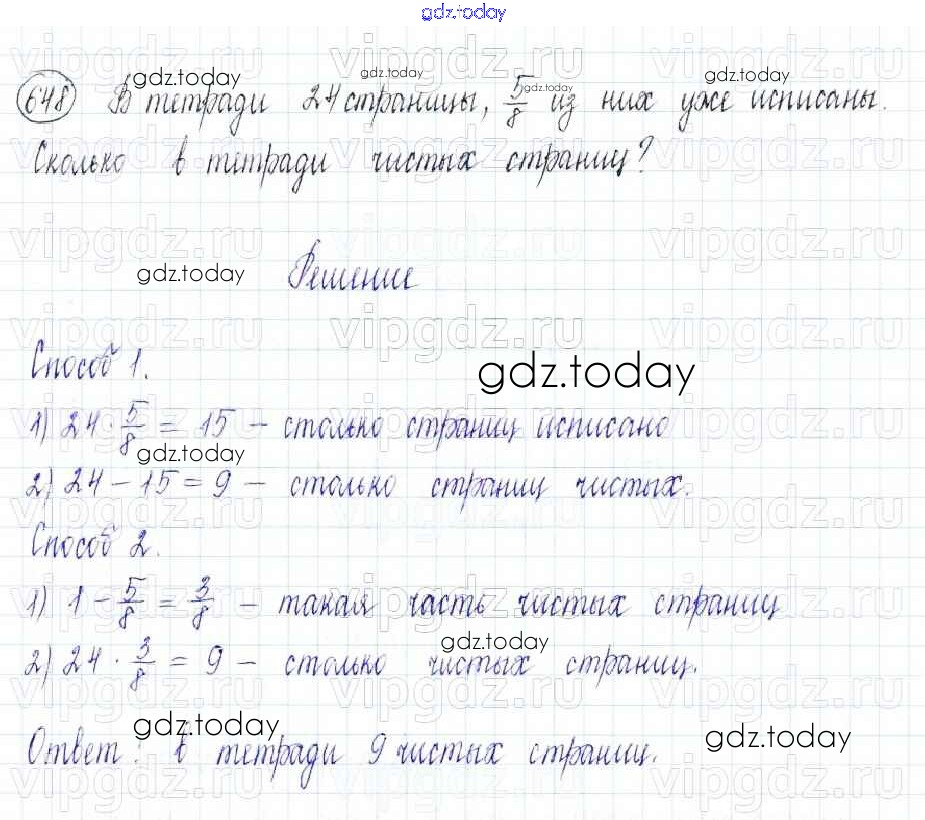 gdz.today
648 В тетради 24 страницы, 5/8 из них уже исписаны.
Сколько в тетради чистых страниц?
Решение
Способ 1.
1) 24 · 5/8 = 15 – столько страниц исписано
2) 24 – 15 = 9 – столько страниц чистых.
Способ 2.
1) 1 – 5/8 = 3/8 – такая часть чистых страниц
2) 24 · 3/8 = 9 – столько чистых страниц.
Ответ: в тетради 9 чистых страниц.